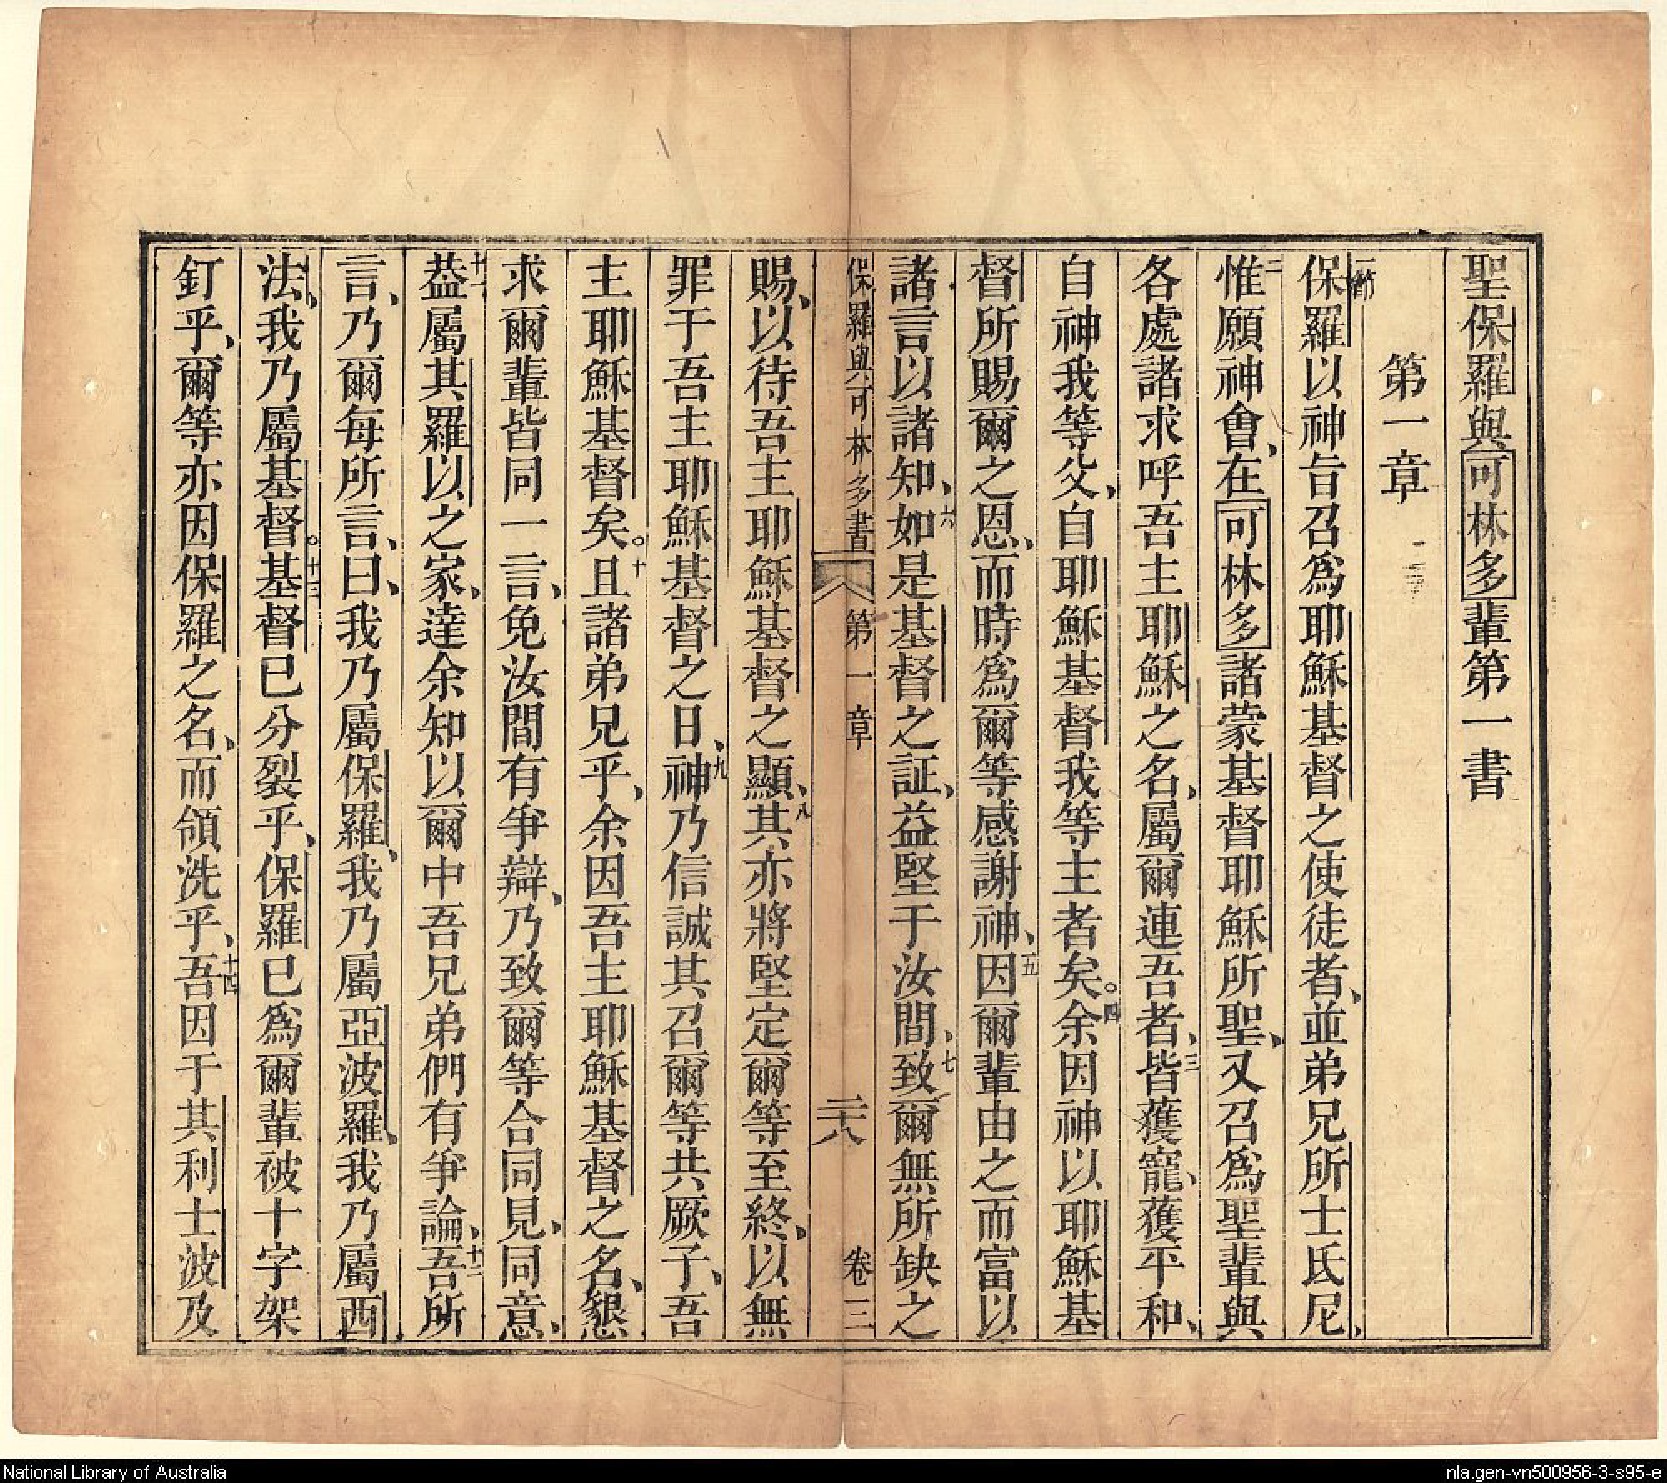 聖保羅與可林多輩第一書
第一章
一節保羅以神旨召爲耶穌基督之使徒者、並弟兄所士氐尼、
二惟願神會、在可林多諸蒙基督耶穌所聖、又召爲聖輩與
各處諸求呼吾主耶穌之名、屬爾連吾者、三皆獲寵、獲平和、
自神我等父、自耶穌基督我等主者矣。四余因神以耶穌基
督所賜爾之恩、而時爲爾等感謝神、五因爾輩由之而富以
諸言以諸知、六如是基督之証、益堅于汝間、七致爾無所缺之
保羅與可林多書 第一章 二十八 卷三
賜、以待吾主耶穌基督之顯、八其亦將堅定爾等至終、以無
罪于吾主耶穌基督之日、九神乃信誠其召爾等共厥子、吾
主耶穌基督矣。十且諸弟兄乎、余因吾主耶穌基督之名、懇
求爾輩皆同一言、免汝間有爭辯、乃致爾等合同見、同意、
十一葢屬其羅以之家、達余知以爾中吾兄弟們有爭論、十二吾所
言、乃爾每所言、曰、我乃屬保羅、我乃屬亞波羅、我乃屬西
法、我乃屬基督。十三基督已分裂乎、保羅已爲爾輩被十字架
釘乎、爾等亦因保羅之名、而領洗乎、十四吾因于其利士波及
National Library of Australia
nla.gen-vn500956-3-s95-e